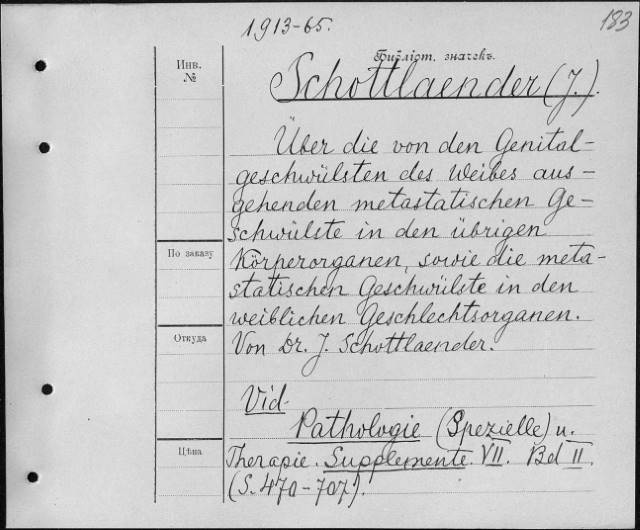 1913-65.
183
Инв.
№
Библіот. значекъ.
Schottlaender (J.).
Über die von den Genital-
geschwülsten des Weibes aus-
gehenden metastatischen Ge-
schwülste in den übrigen
Körperorganen, sowie die meta-
statischen Geschwülste in den
weiblichen Geschlechtsorganen.
Von Dr. J. Schottlaender.
По заказу
Откуда
Цѣна
Vid.
Pathologie (Spezielle) u.
Therapie. Supplemente. VII. Bd II.
(S. 470-707).